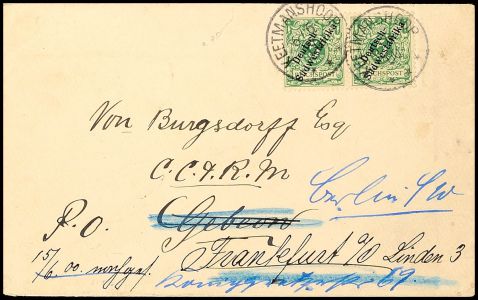 KEETMANSHOOP
KEETMANSHOOP
Deutsch-
Südwestafrika
Deutsch-
Südwestafrika
REICHSPOST
REICHSPOST
Von Burgsdorff Esq
C.C.&.R.M
Berlin SW
Gebeon
P.O.
Frankfurt a/O Linden 3
15/6.00.
69.